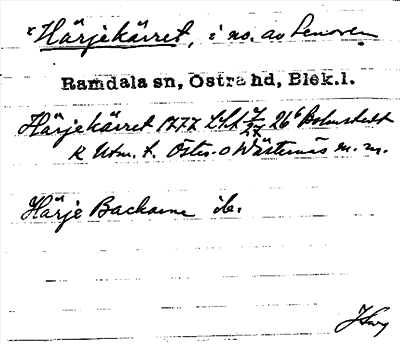 x Härjekärret, i no. av Senoren
Ramdala sn, Östra hd, Blek.l.
Härjekärret 1777 LSA 7/27 26b Bohnstedt
K Utm. t. Öster- o Västernäs m. m.
Härje Backarne ib.